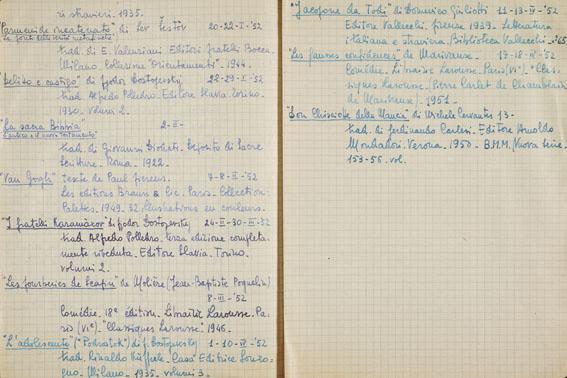 ri stranieri. 1935.
"Parmenide incatenato" di Lev Šestòv 20-22-I-'52
Le fonti
trad. di E. Valenziani Editori fratelli Bocca.
Milano. Collezione "Orientamenti". 1944.
"Delitto e castigo" di fjodor Dostojevsky 22-29-I-'52
trad. Alfredo Polledro. Editore Slavia. Torino.
1930. volumi 2.
"La sacra Bibbia" 2-II-
trad. di Giovanni Diodati. Deposito di Sacre
Scritture. Roma. 1922.
"Van Gogh" texte de Paul 7-8-II-'52
Les editions Braun & Cie. Paris. Collection:
Palettes. 1949. 32 illustrations en couleurs.
"I fratelli Karamàzov" di fjodor Dostojevsky 24-II-30-III-'52
trad. Alfredo Polledro. terza edizione completa-
mente riveduta. Editore Slavia. Torino.
volumi 2.
"Les fourberies de Scapin" de Molière (Jean-Baptiste Poquelin)
8-III-'52
Comédie. 18e édition. Librairie Larousse. Pa-
ris (VIe). "Classiques Larousse". 1946.
"L'adolescente" ("Podrostok") di f. Dostojevsky 1-10-IV-'52
trad. Rinaldo Küfferle. Casa Editrice Sonzo-
gno. Milano. 1935. volumi 3.
"Jacopone da Todi" di Domenico Giuliotti 11-13-IV-'52
Editore Vallecchi. firenze 1939. Letteratura
italiana e straniera. Biblioteca Vallecchi. 65
"Les fausses confidences" de Marivaux. 17-18-IV-'52
Comédie. Librairie Larousse. Paris (VIe). "Clas-
siques Larousse". Pierre Carlet de Chamblain
de Marivaux). 1951.
"Don Chisciotte della Mancia" di Michele Cervantes 13-
trad. di ferdinando Carlesi. Editore Arnoldo
Mondadori. Verona. 1950. B.M.M. Nuova Serie.
153-56. vol.